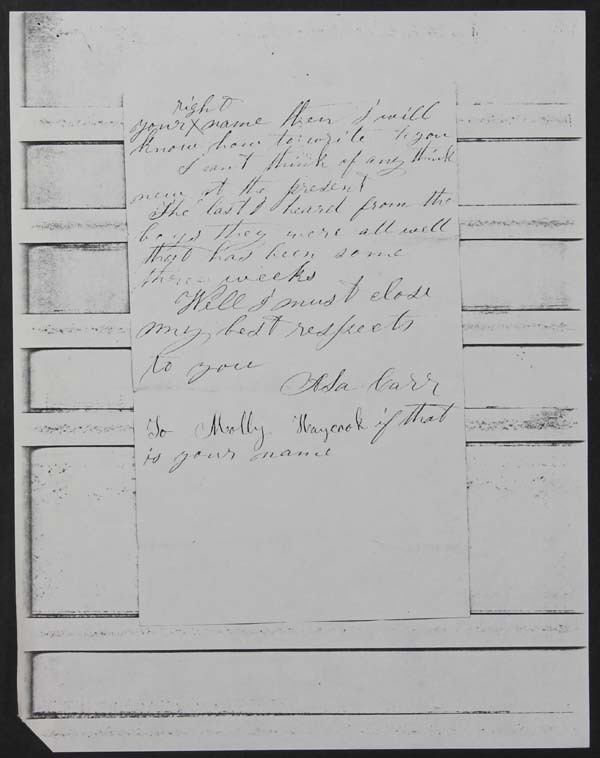 right
your x name then I will
know how to write to you
I can't think of any think
new at the present
The last I heard from the
boys they were all well
that has been some
three weeks
Well I must close
my best respects
to you
Asa Carr
To Molly Haycook if that
is your name